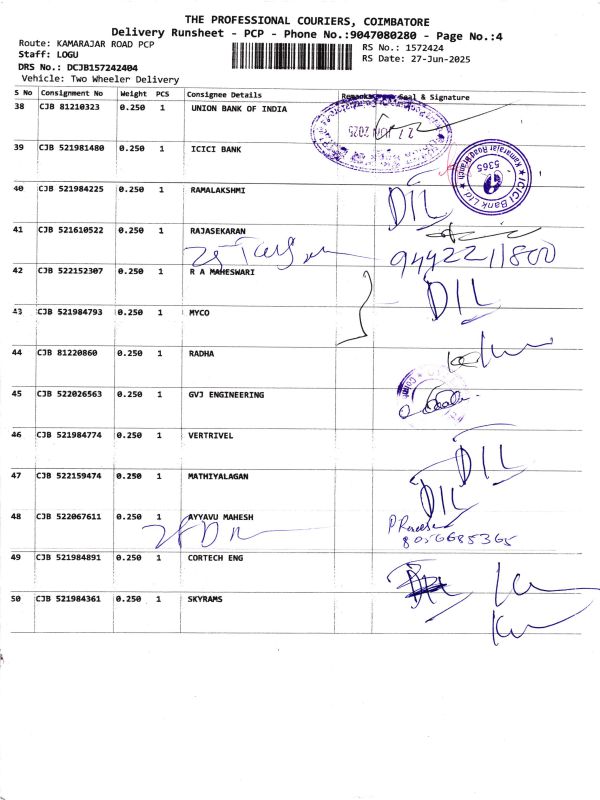 THE PROFESSIONAL COURIERS, COIMBATORE
Delivery Runsheet - PCP - Phone No.:9047080280 - Page No.:4
Route: KAMARAJAR ROAD PCP
RS No.: 1572424
Staff: LOGU
RS Date: 27-Jun-2025
DRS No.: DCJB157242404
Vehicle: Two Wheeler Delivery
S No Consignment No Weight PCS Consignee Details Remarks Seal & Signature
38 CJB 81210323 0.250 1 UNION BANK OF INDIA
27 JUN 2025
39 CJB 521981480 0.250 1 ICICI BANK
ICICI Bank Ltd Kamarajar Road Branch
5365
40 CJB 521984225 0.250 1 RAMALAKSHMI
DIL
41 CJB 521610522 0.250 1 RAJASEKARAN
9442211800
42 CJB 522152307 0.250 1 R A MAHESWARI
DIL
43 CJB 521984793 0.250 1 MYCO
44 CJB 81220860 0.250 1 RADHA
45 CJB 522026563 0.250 1 GVJ ENGINEERING
46 CJB 521984774 0.250 1 VERTRIVEL
DIL
47 CJB 522159474 0.250 1 MATHIYALAGAN
DIL
48 CJB 522067611 0.250 1 AYYAVU MAHESH
8056685365
49 CJB 521984891 0.250 1 CORTECH ENG
50 CJB 521984361 0.250 1 SKYRAMS